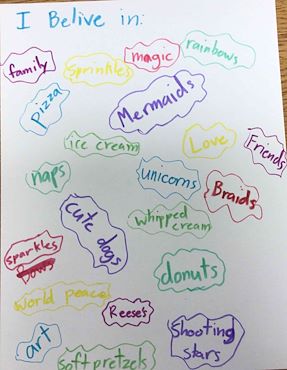 I Belive in:
family
Sprinkles
magic
rainbows
Pizza
Mermaids
ice cream
Love
Friends
naps
unicorns
Braids
cute dogs
whipped
cream
sparkles
Bows
donuts
world peace
Reese's
art
softpretzels
Shooting
stars